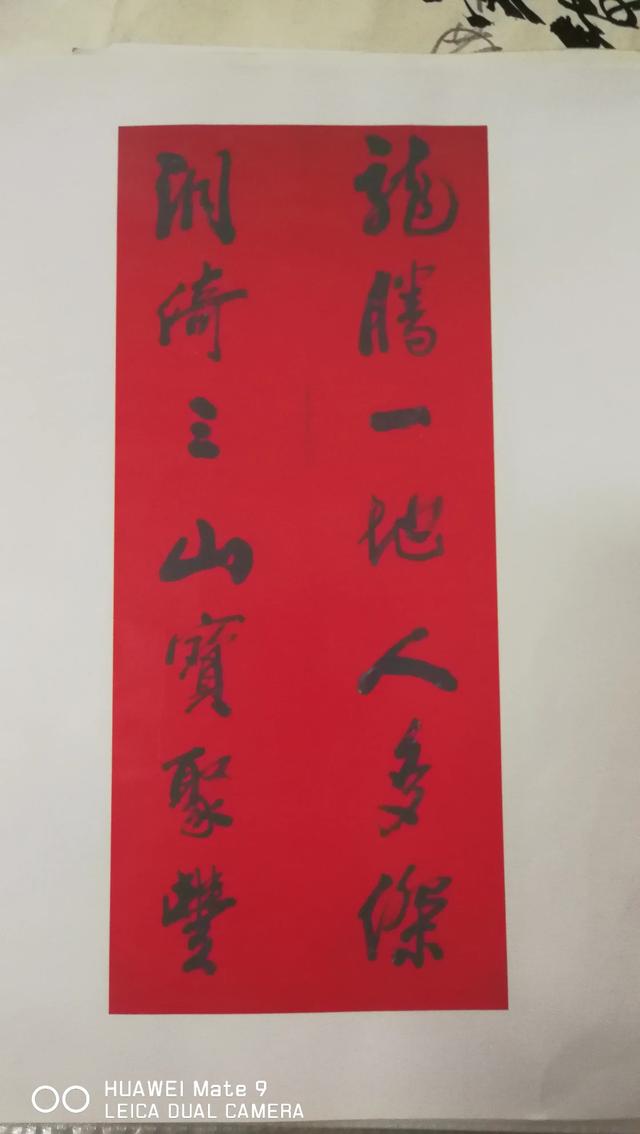 龍騰一地人多傑
湖倚三山寶聚豐
HUAWEI Mate 9
LEICA DUAL CAMERA